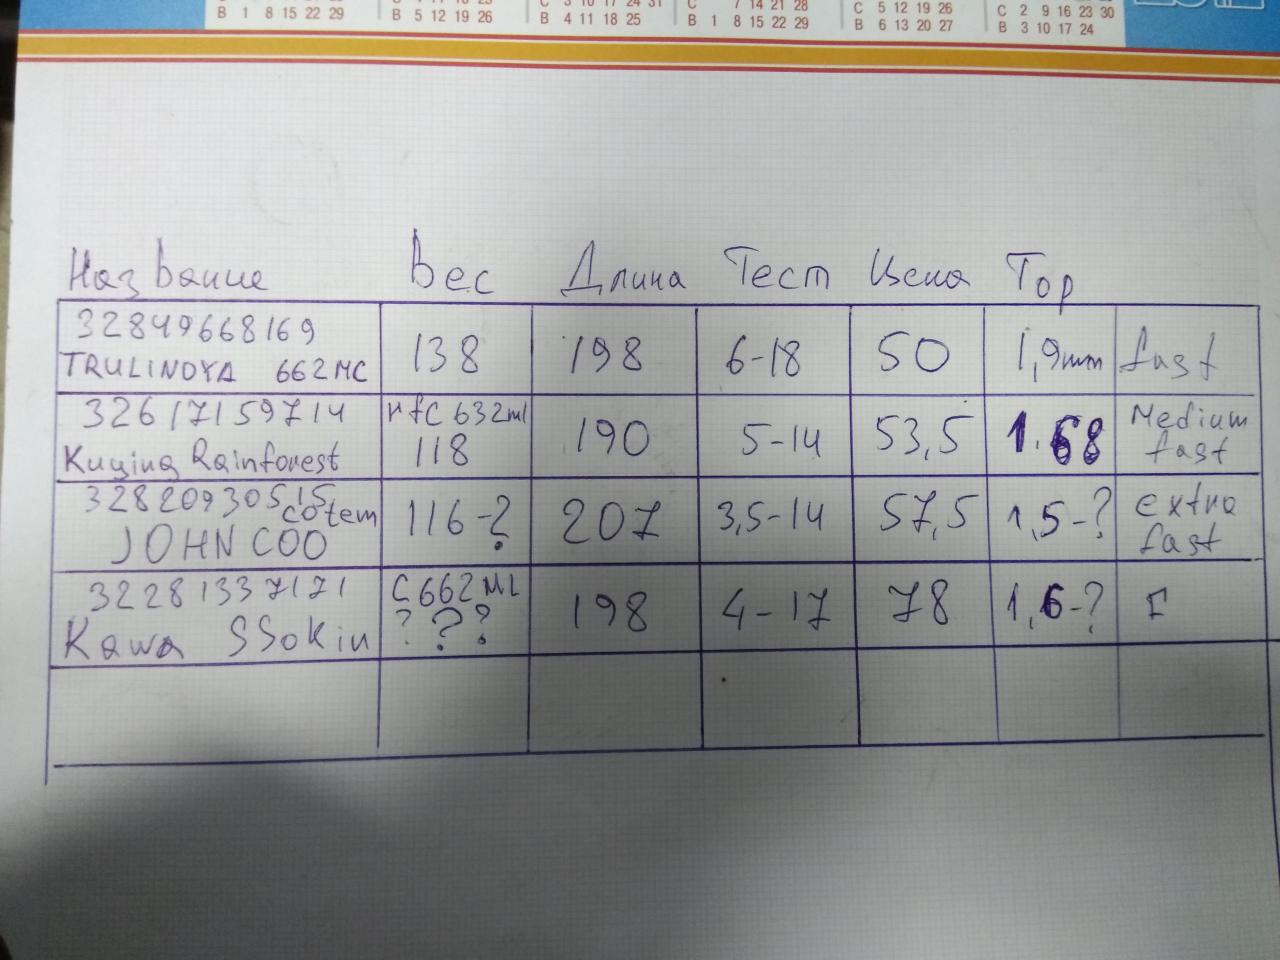 В 1 8 15 22 29
В 5 12 19 26
В 4 11 18 25
7 14 21 28
В 1 8 15 22 29
С 5 12 19 26
В 6 13 20 27
С 2 9 16 23 30
В 3 10 17 24
Название Вес Длина Тест Цена Тор
32849668169
TRULINOYA 662MC 138 198 6-18 50 1,9mm fast
32617159714
Kuying Rainforest
rfC 632ml
118
190 5-14 53,5 1.68
Medium
fast
32820930515
cotem
JOHNCOO
116-? 207 3,5-14 57,5 1,5-?
extra
fast
32281337171
Kawa SSokin
C662ML
? ? ?
198 4-17 78 1,6-? F